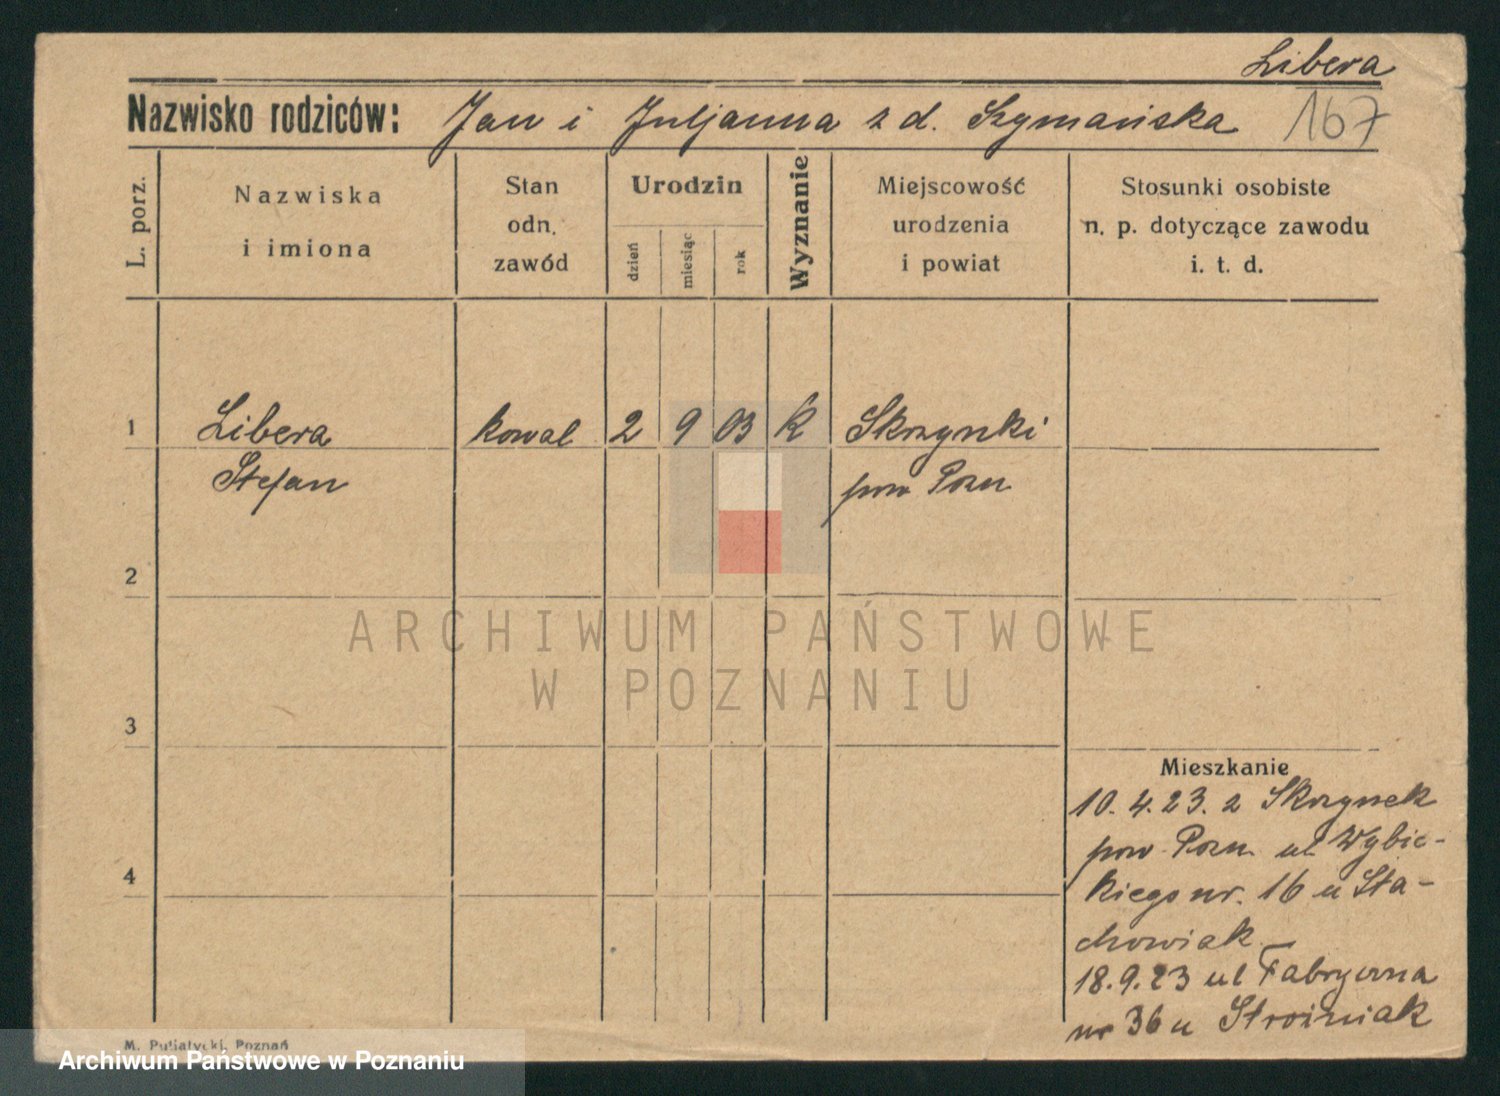 Libera
Nazwisko rodziców: Jan i Juljanna z d. Szymańska 167
L. porz.
Nazwiska
i imiona
Stan
odn.
zawód
Urodzin
dzień
miesiąc
rok
Wyznanie
Miejscowość
urodzenia
i powiat
Stosunki osobiste
n. p. dotyczące zawodu
i. t. d.
1 Libera kowal 2 9 03 K Skrzynki
Stefan pow Pozn
2
ARCHIWUM PAŃSTWOWE
W POZNANIU
3
Mieszkanie
10. 4. 23. z Skrzynek
pow Pozn ul Wybic-
4
kiego nr. 16 u Sta-
chowiak
18. 9. 23 ul Fabryczna
nr 36 u Stroiniak
M. Putiatycki, Poznań
Archiwum Państwowe w Poznaniu